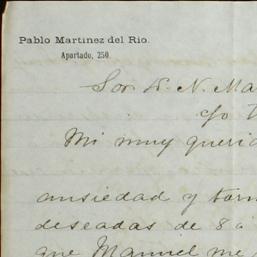 Pablo Martinez del Rio.
Apartado, 250
Sor D. N. Ma
c/o
Mi muy querid
ansiedad y
deseadas de 8 a
que Manuel me